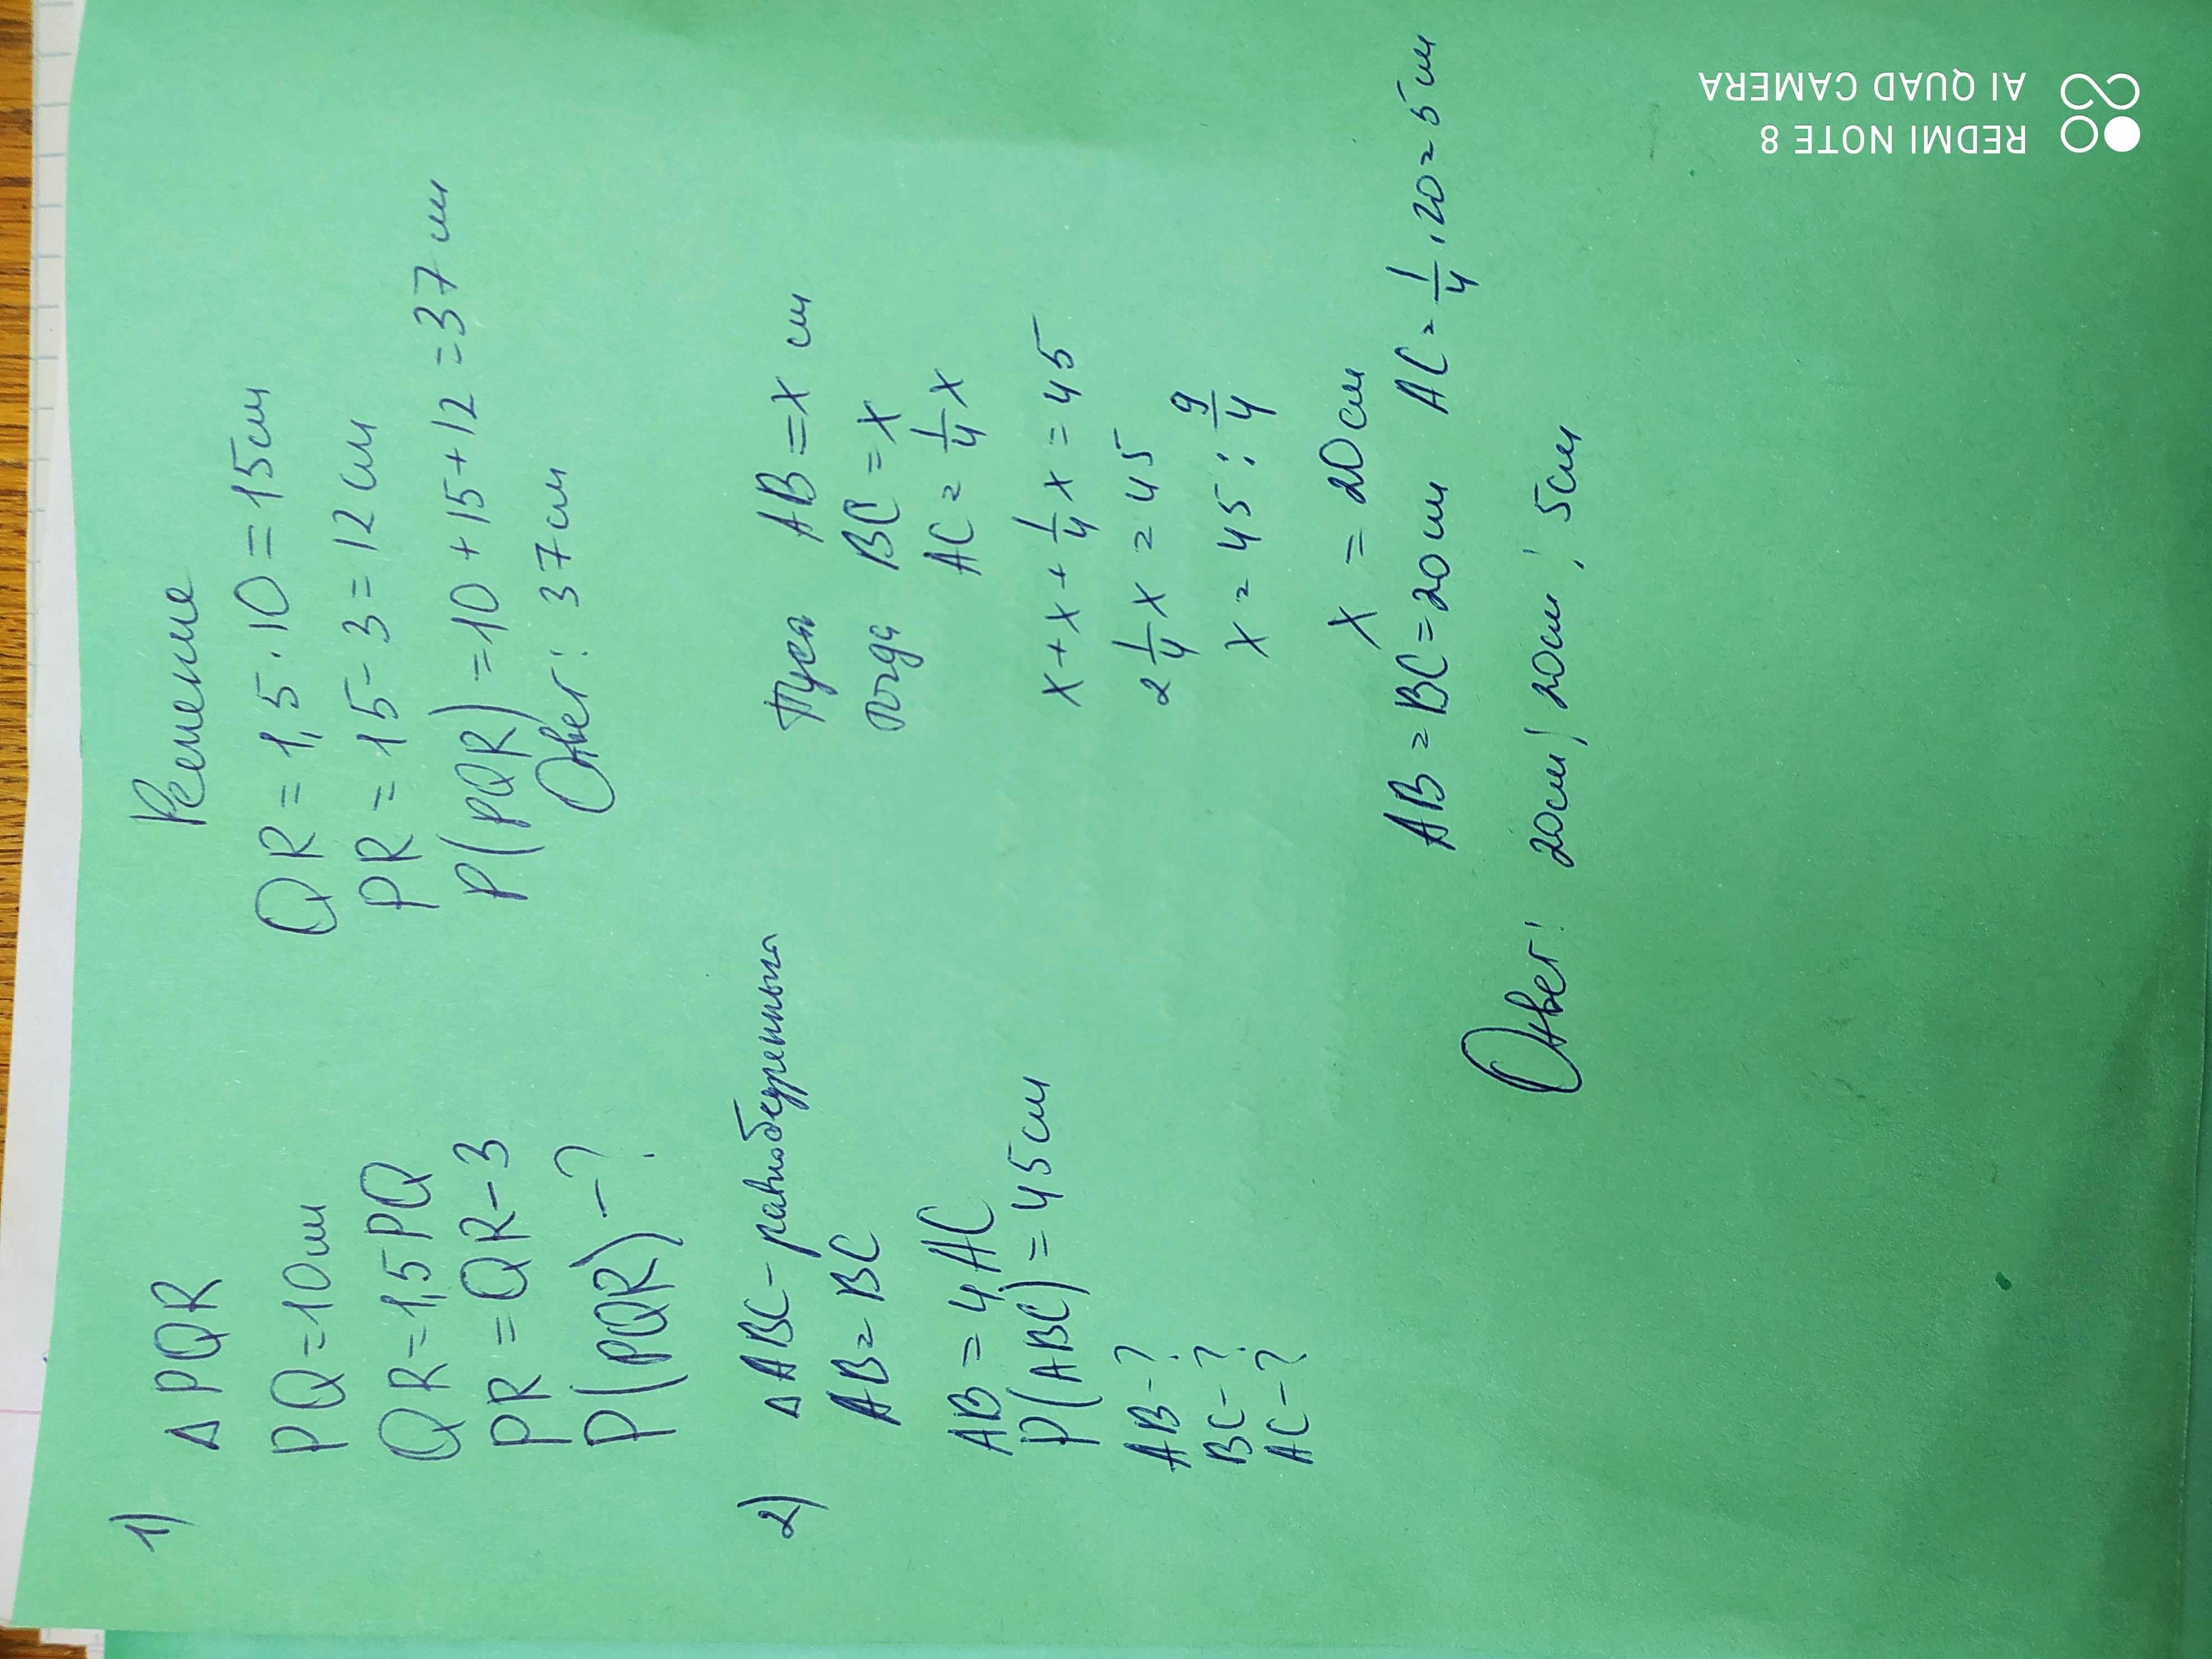 1) Δ PQR
PQ = 10 см
QR = 1,5 PQ
PR = QR - 3
P(PQR) - ?
Решение
QR = 1,5 · 10 = 15 см
PR = 15 - 3 = 12 см
P(PQR) = 10 + 15 + 12 = 37 см
Ответ: 37 см
2) Δ ABC - равнобедренный
AB = BC
AB = 4 AC
P(ABC) = 45 см
AB - ?
BC - ?
AC - ?
Пусть AB = x см
тогда BC = x
AC = 1/4 x
x + x + 1/4 x = 45
2 1/4 x = 45
x = 45 : 9/4
x = 20 см
AB = BC = 20 см AC = 1/4 · 20 = 5 см
Ответ: 20 см; 20 см; 5 см
REDMI NOTE 8
AI QUAD CAMERA